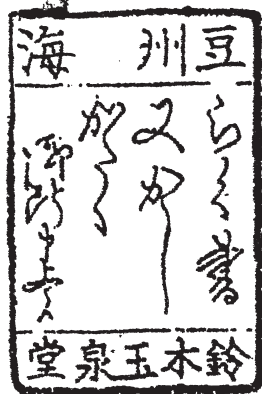 豆州海
らく書
又かし
かたく
御断申上候
鈴木玉泉堂